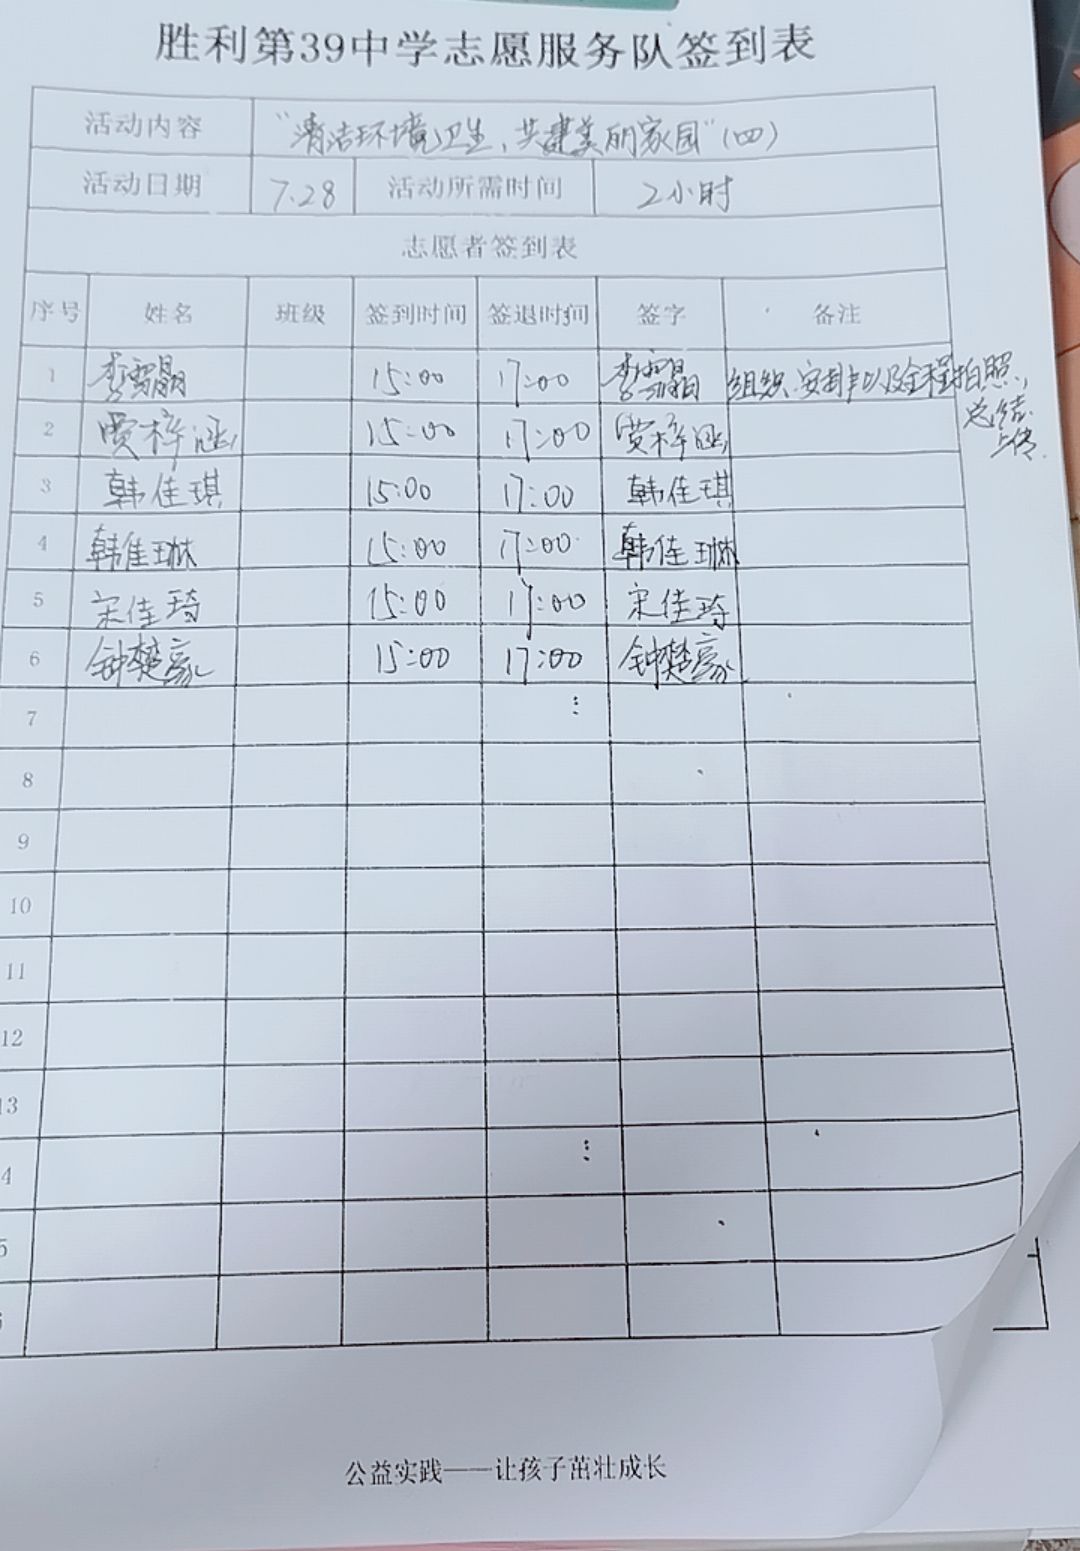 胜利第39中学志愿服务队签到表
活动内容 "清洁环境卫生,共建美丽家园"(四)
活动日期 7.28 活动所需时间 2小时
志愿者签到表
序号 姓名 班级 签到时间 签退时间 签字 备注
1 李雪晶 15:00 17:00 李雪晶 组织、安排以及全程拍照,
总结.
上传.
2 贾梓涵 15:00 17:00 贾梓涵
3 韩佳琪 15:00 17:00 韩佳琪
4 韩佳琳 15:00 17:00 韩佳琳
5 宋佳琦 15:00 17:00 宋佳琦
6 钟楚豪 15:00 17:00 钟楚豪
7
8
9
10
11
12
13
4
5
公益实践——让孩子茁壮成长